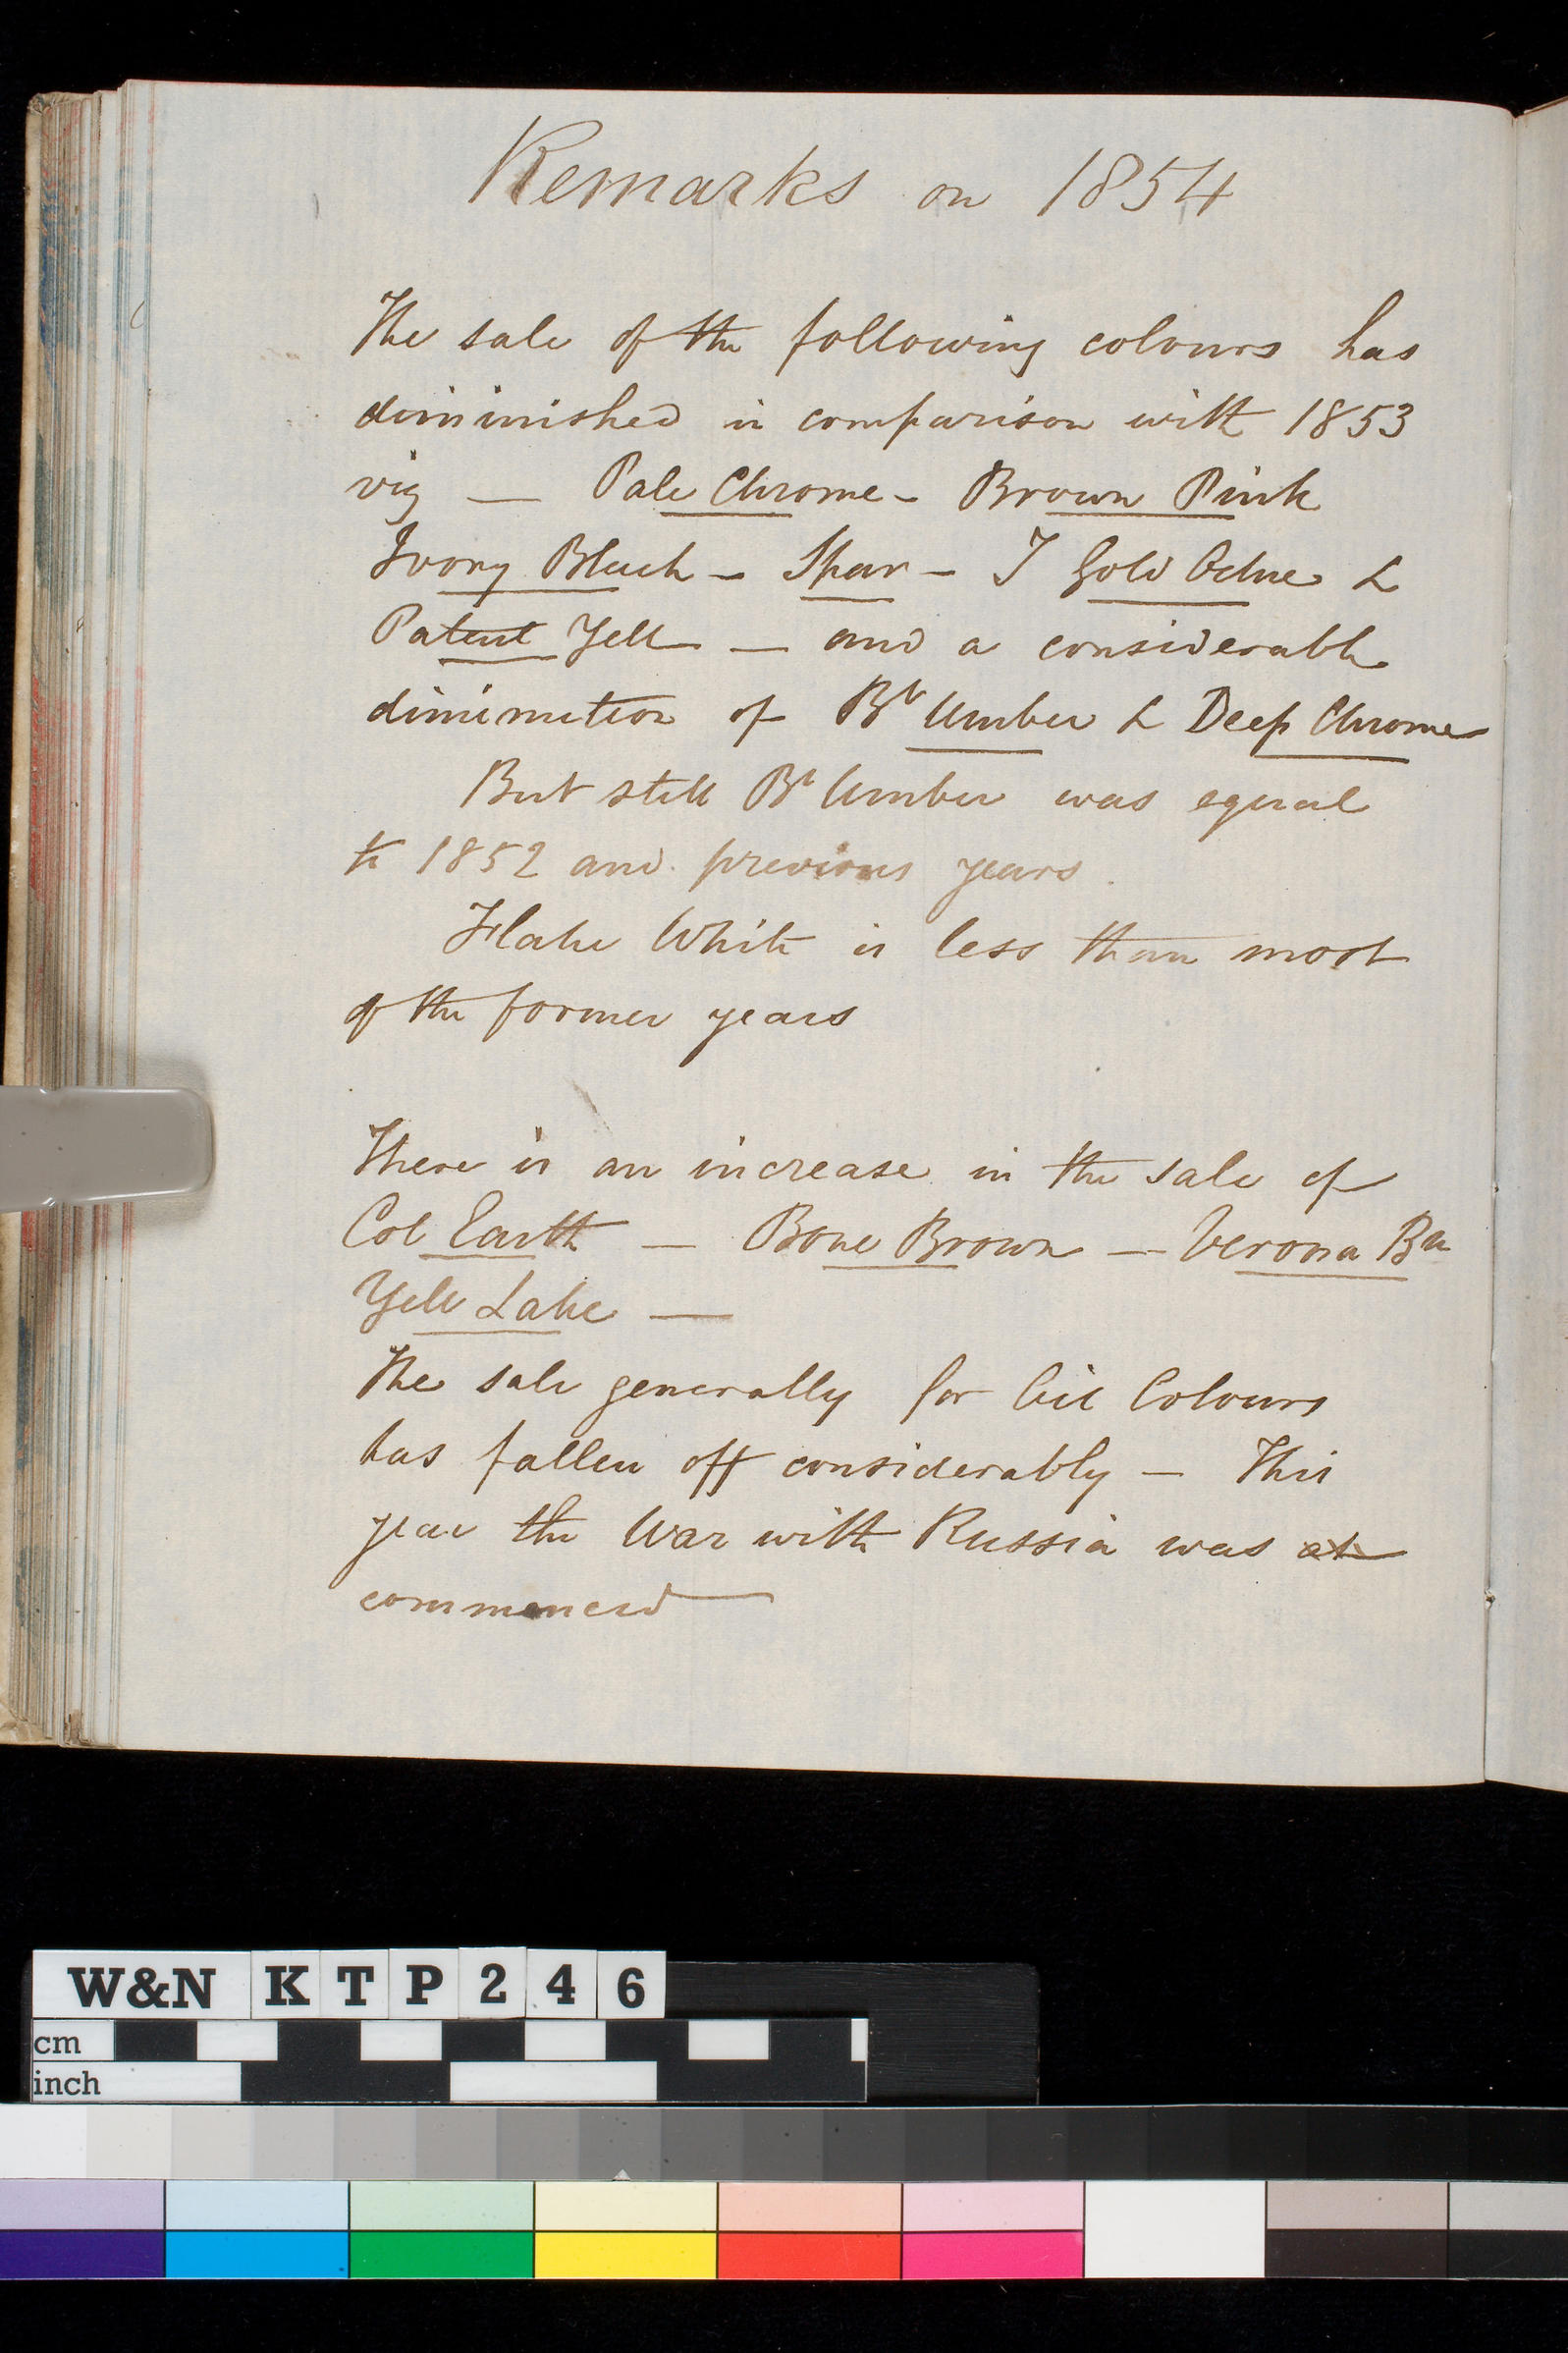 Remarks on 1854
The sale of the following colours has
diminished in comparison with 1853
viz — Pale Chrome - Brown Pink
Ivory Black - Spar - T Gold Ochre &
Patent Yell — and a considerable
diminution of Bt Umber & Deep Chrome
But still Bt Umber was equal
to 1852 and previous years.
Flake White is less than most
of the former years
There is an increase in the sale of
Col Earth — Bone Brown — Verona Bn
Yell Lake —
The sale generally for Oil Colours
has fallen off considerably — This
year the War with Russia was at
commenced
W&N KTP246
cm
inch